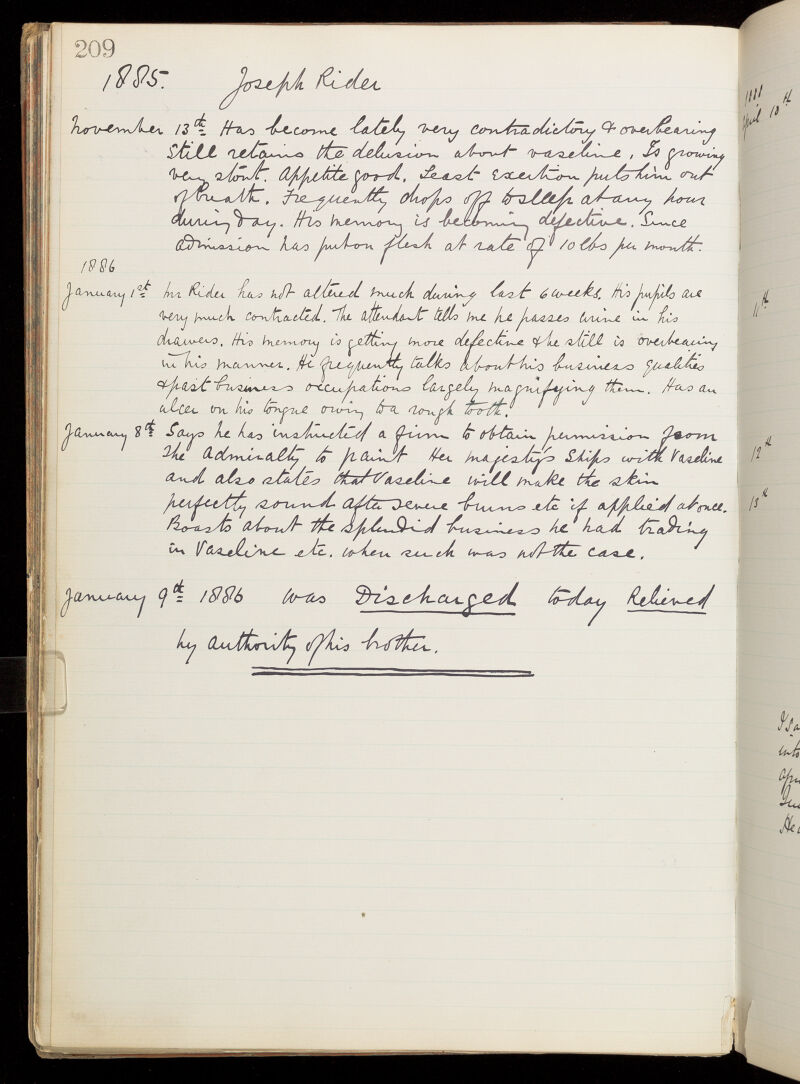 209
1885. Joseph Rider
November 13th Has become lately very contradictory & overbearing
Still retains the delusion about vaseline. Is growing
very stout. Appetite good. Least exertion puts him out
of breath. Frequently drops off to sleep at any hour
during day. His memory is becoming defective. Since
admission has put on flesh at rate of 10 lbs per month.
1886
January 1st Mr Rider has not altered much during last 6 weeks. His pupils are
very much contracted. The attendant tells me he passes urine in his
drawers. His memory is getting more defective & he still is overbearing
in his manner. He frequently talks about his business qualities
& past business occupations largely magnifying them. Has an
ulcer on his tongue owing to a rough tooth.
January 8th Says he has instructed a firm to obtain permission from
the Admiralty to paint Her majesty's Ships with Vaseline
and also states that Vaseline will make the skin
perfectly sound after severe burns etc if applied at once.
Boasts about the splendid business he had trading
in Vaseline etc. when such was not the case.
January 9th 1886 was Discharged today Relieved
by authority of his brother.
1888
April 10th
11th
12th
13th